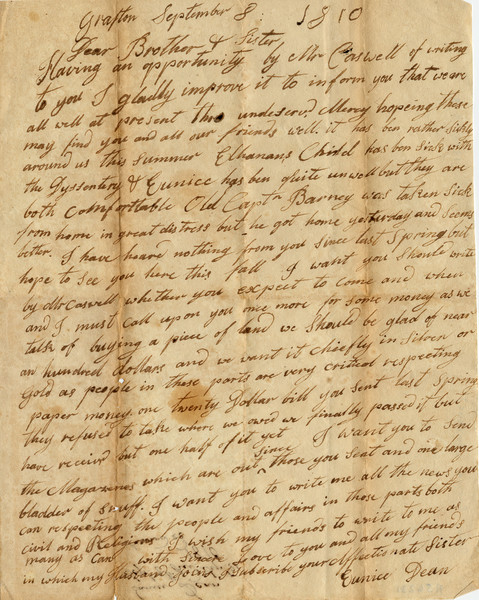 Grafton September 8: 1810
Dear Brother & Sister
Having an opportunity by Mr Caswell of writing
to you I gladly improve it to inform you that we are
all well at present thro undeserv'd Mercy hopeing these
may find you and all our friends well. it has ben rather sickly
around us this summer Elkanans Child has ben sick with
the Dyssentery & Eunice has ben quite unwell but they are
both comfortable Old Captn Barney was taken Sick
from home in great distress but he got home yesterday and seems
better. I have heard nothing from you since last Spring but
hope to see you here this fall I want you should write
by Mr Caswell whether you expect to come and when
and I must call upon you once more for some money as we
talk of buying a piece of land we should be glad of near
an hundred dollars and we want it chiefly in silver or
Gold as people in these parts are very critical respecting
paper money. one twenty Dollar bill you sent last Spring
they refused to take where we owed we finally passed it but
have receivd but one half of it yet I want you to send
the Magazenes which are out since those you sent and one large
bladder of Snuff. I want you to write me all the news you
can respecting the people and affairs in those parts both
civil and Religious I wish my friends to write to me as
many as Can with Sincere Love to you and all my friends
in which my Husband Joins I Subscribe your Affectionate Sister
Eunice Dean